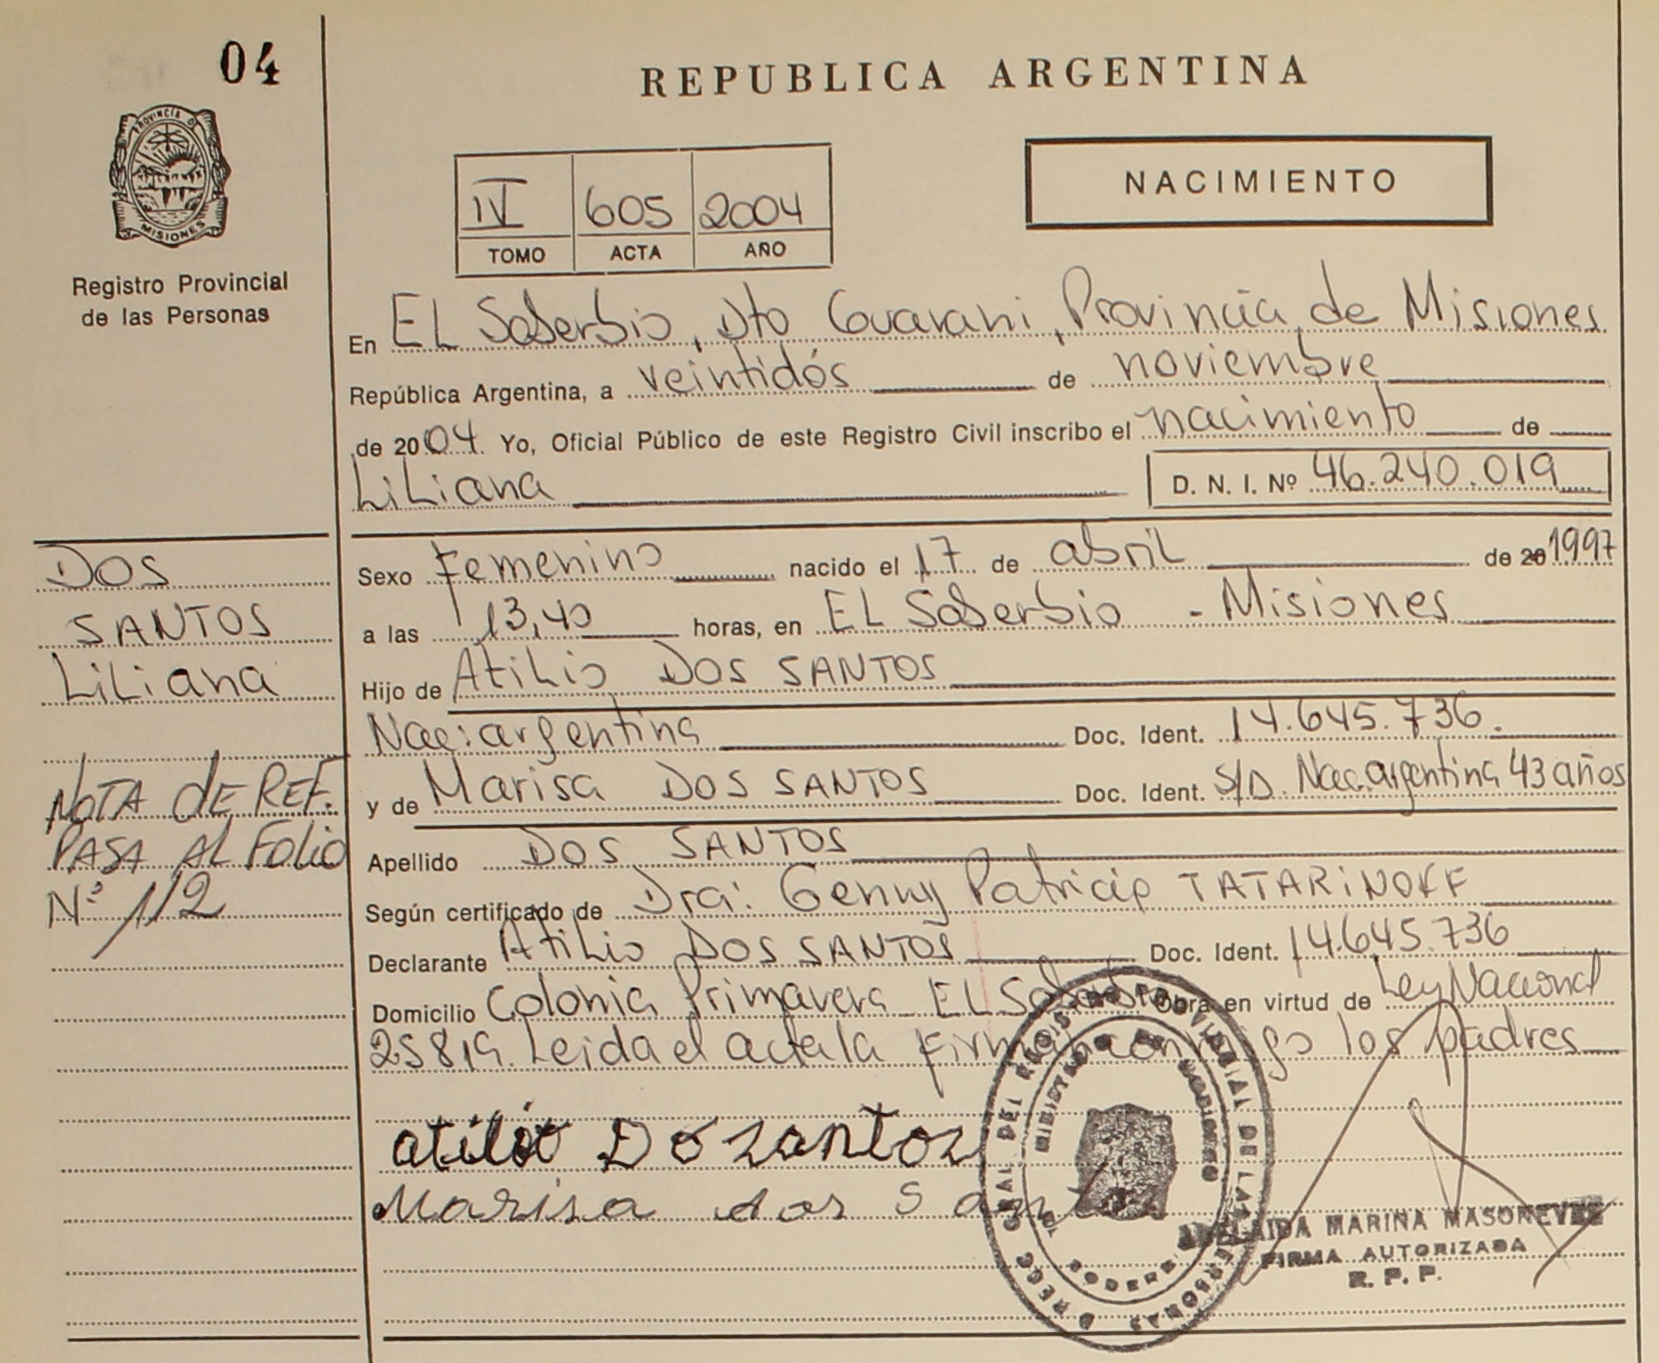 04
REPUBLICA ARGENTINA
PROVINCIA D
MISIONES
Registro Provincial
de las Personas
IV 605 2004
TOMO ACTA AÑO
NACIMIENTO
En EL Soberbio, Dto Guarani, Provincia de Misiones
República Argentina, a veintidós de noviembre
de 2004. Yo, Oficial Público de este Registro Civil inscribo el nacimiento de
Liliana D. N. I. Nº 46.240.019
DOS
SANTOS
Liliana
Sexo Femenino nacido el 17 de abril de 20 1997
a las 13,40 horas, en EL Soberbio - Misiones
Hijo de Atilio DOS SANTOS
Nac: argentina Doc. Ident. 14.645.736.
y de Marisa DOS SANTOS Doc. Ident. S/D. Nac. argentina 43 años
NOTA dE REF.
PASA AL Folio
Nº 112
Apellido DOS SANTOS
Según certificado de Dra: Genny Patricia TATARiNOFF
Declarante Atilio DOS SANTOS Doc. Ident. 14.645.736
Domicilio Colonia Primavera EL Soberbio Obra en virtud de Ley Nacional
25819. Leida el acta la firman conmigo los padres
atilio Do zantoz
Marisa dos Santos
MARINA
FIRMA AUTORIZADA
R. P. P.